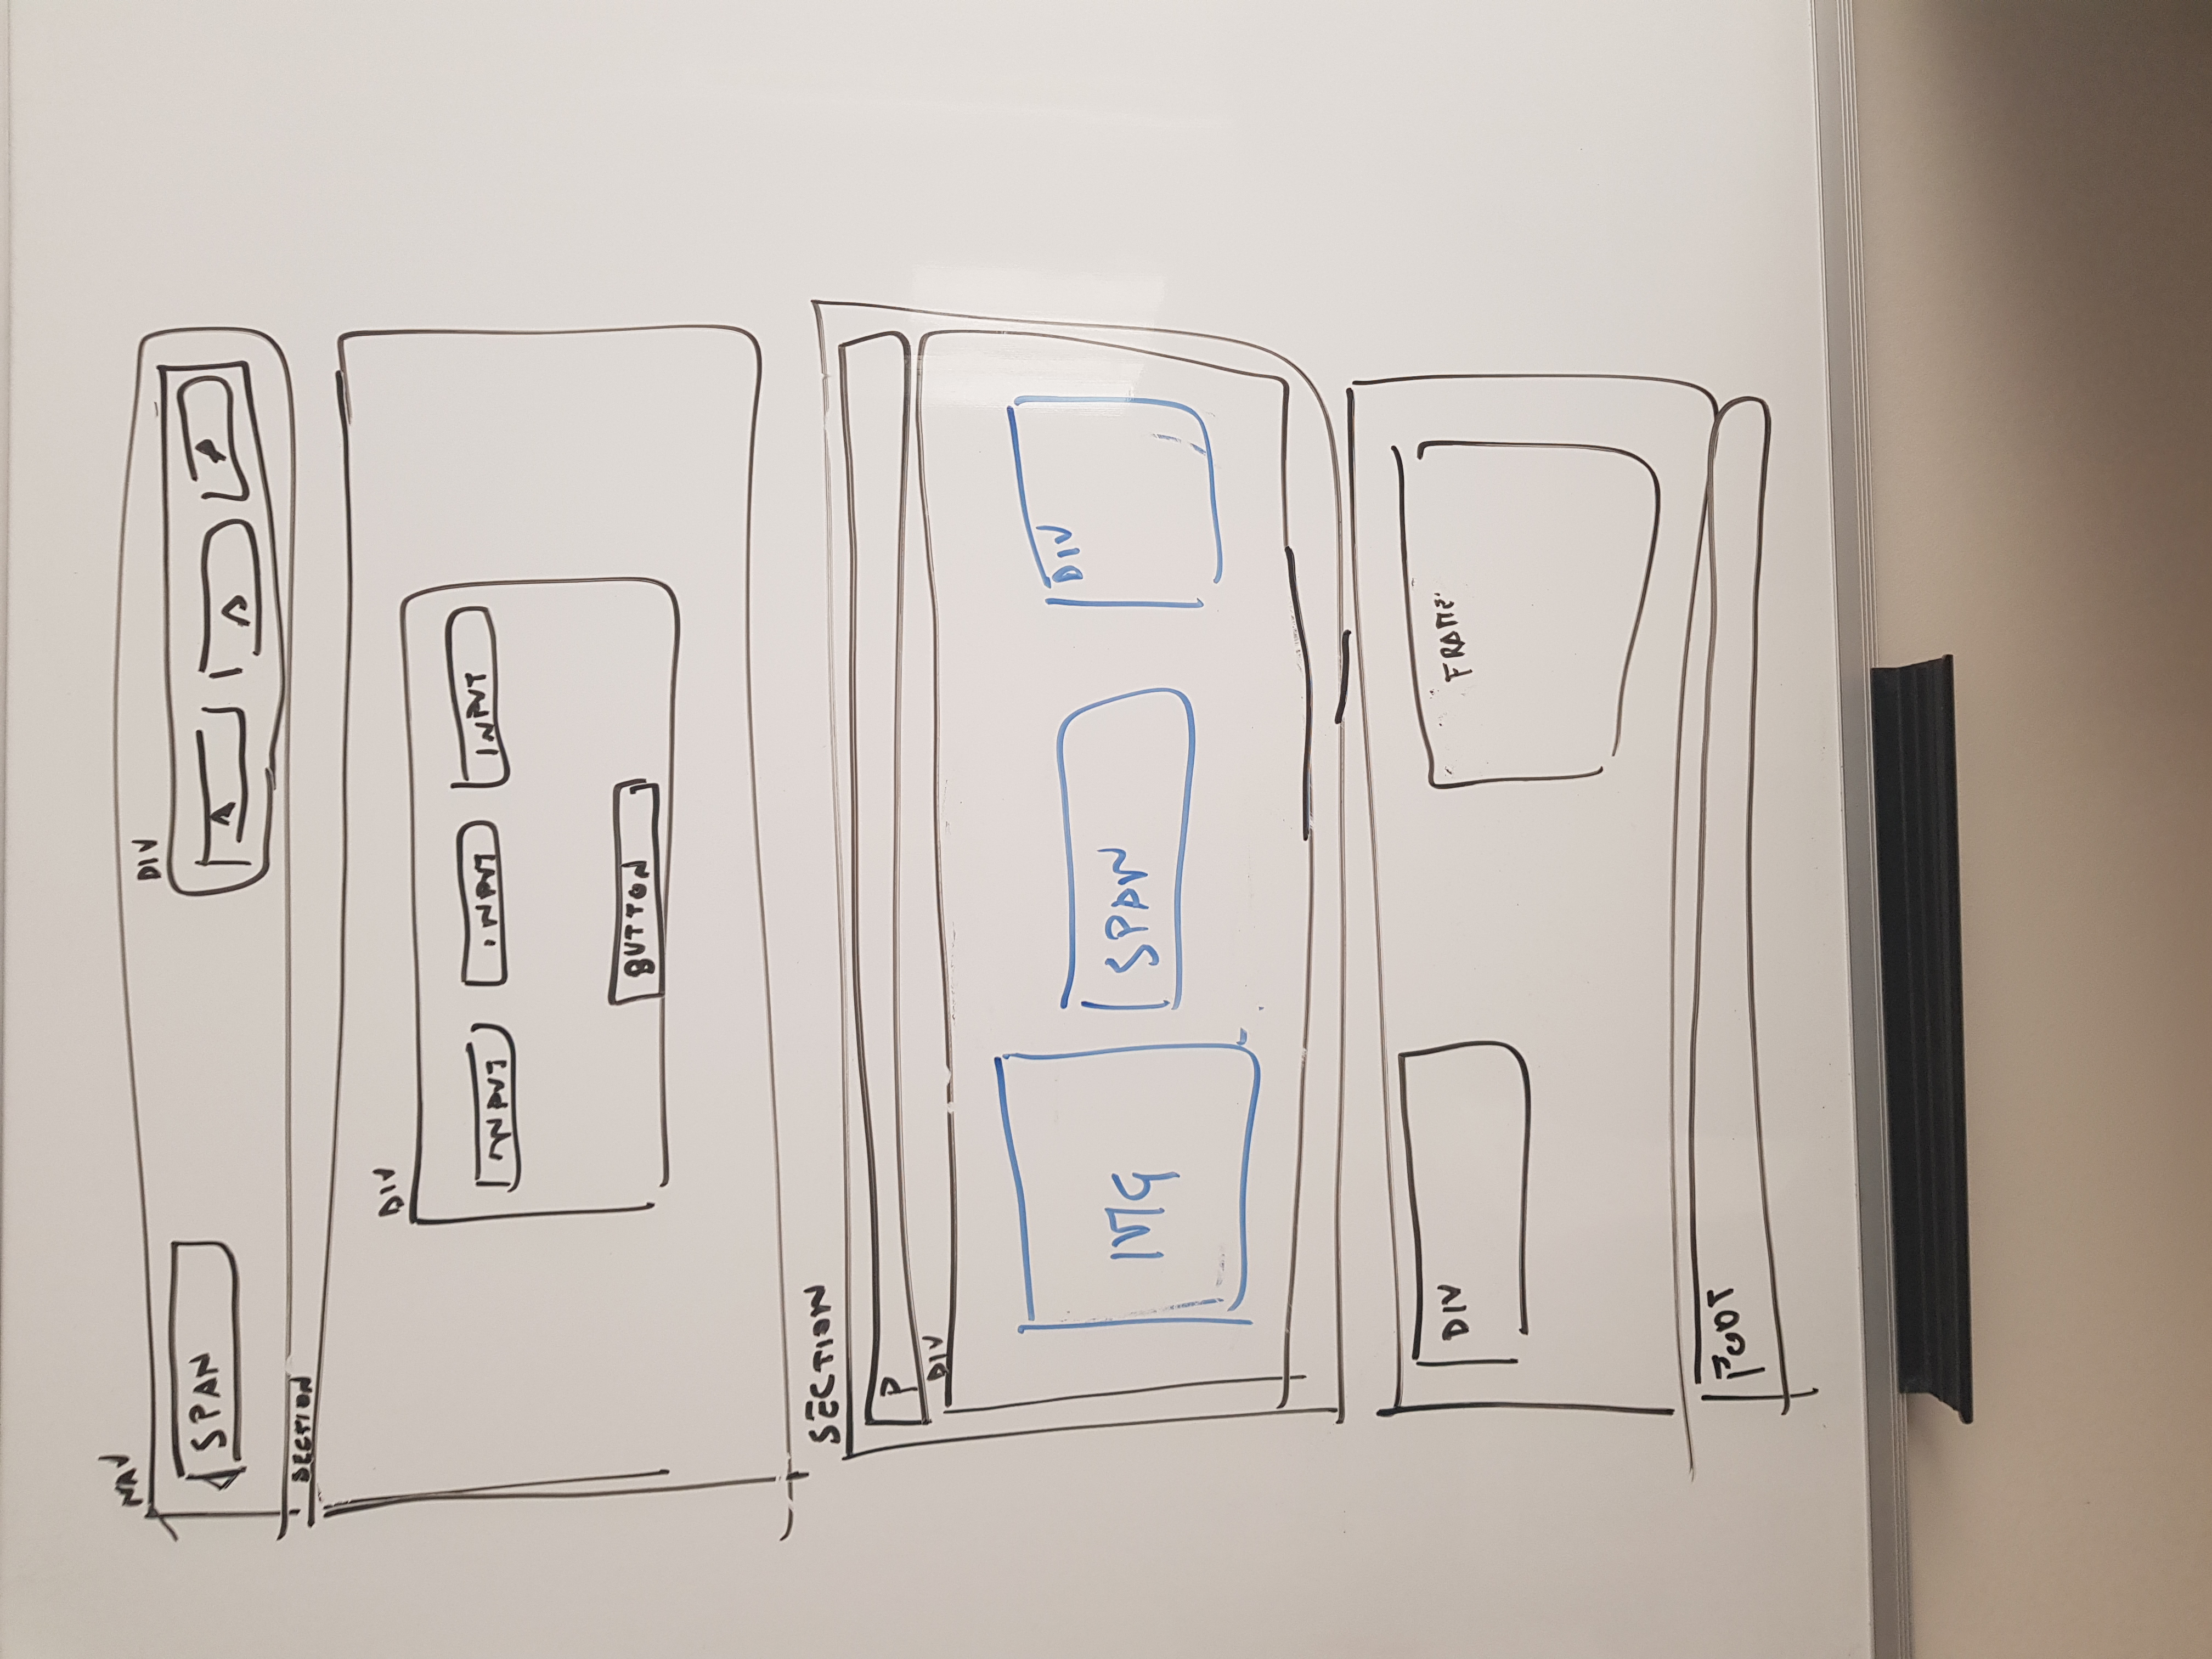 NAV
DIV
SPAN
A A A
SECTION
DIV
INPUT INPUT INPUT
BUTTON
SECTION
P
DIV
IMG SPAN DIV
DIV FRAME
FOOT